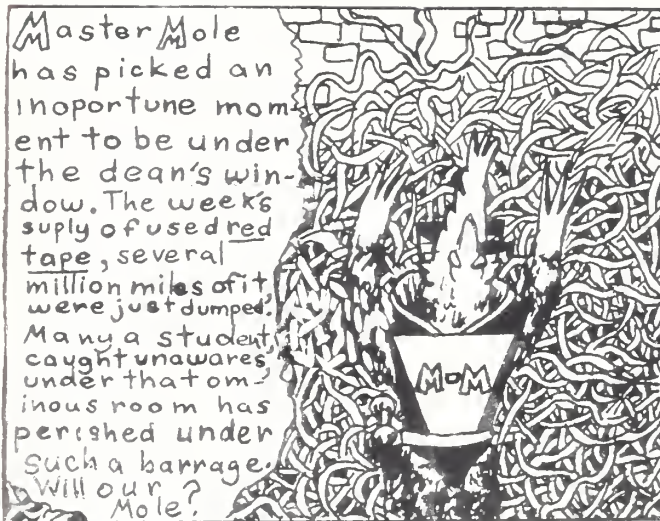 Master Mole
has picked an
inoportune mom-
ent to be under
the dean's win-
dow. The week's
suply of used red
tape, several
million miles of it,
were just dumped.
Many a student,
caught unawares
under that om-
inous room has
perished under
such a barrage.
Will our
Mole?
M-M